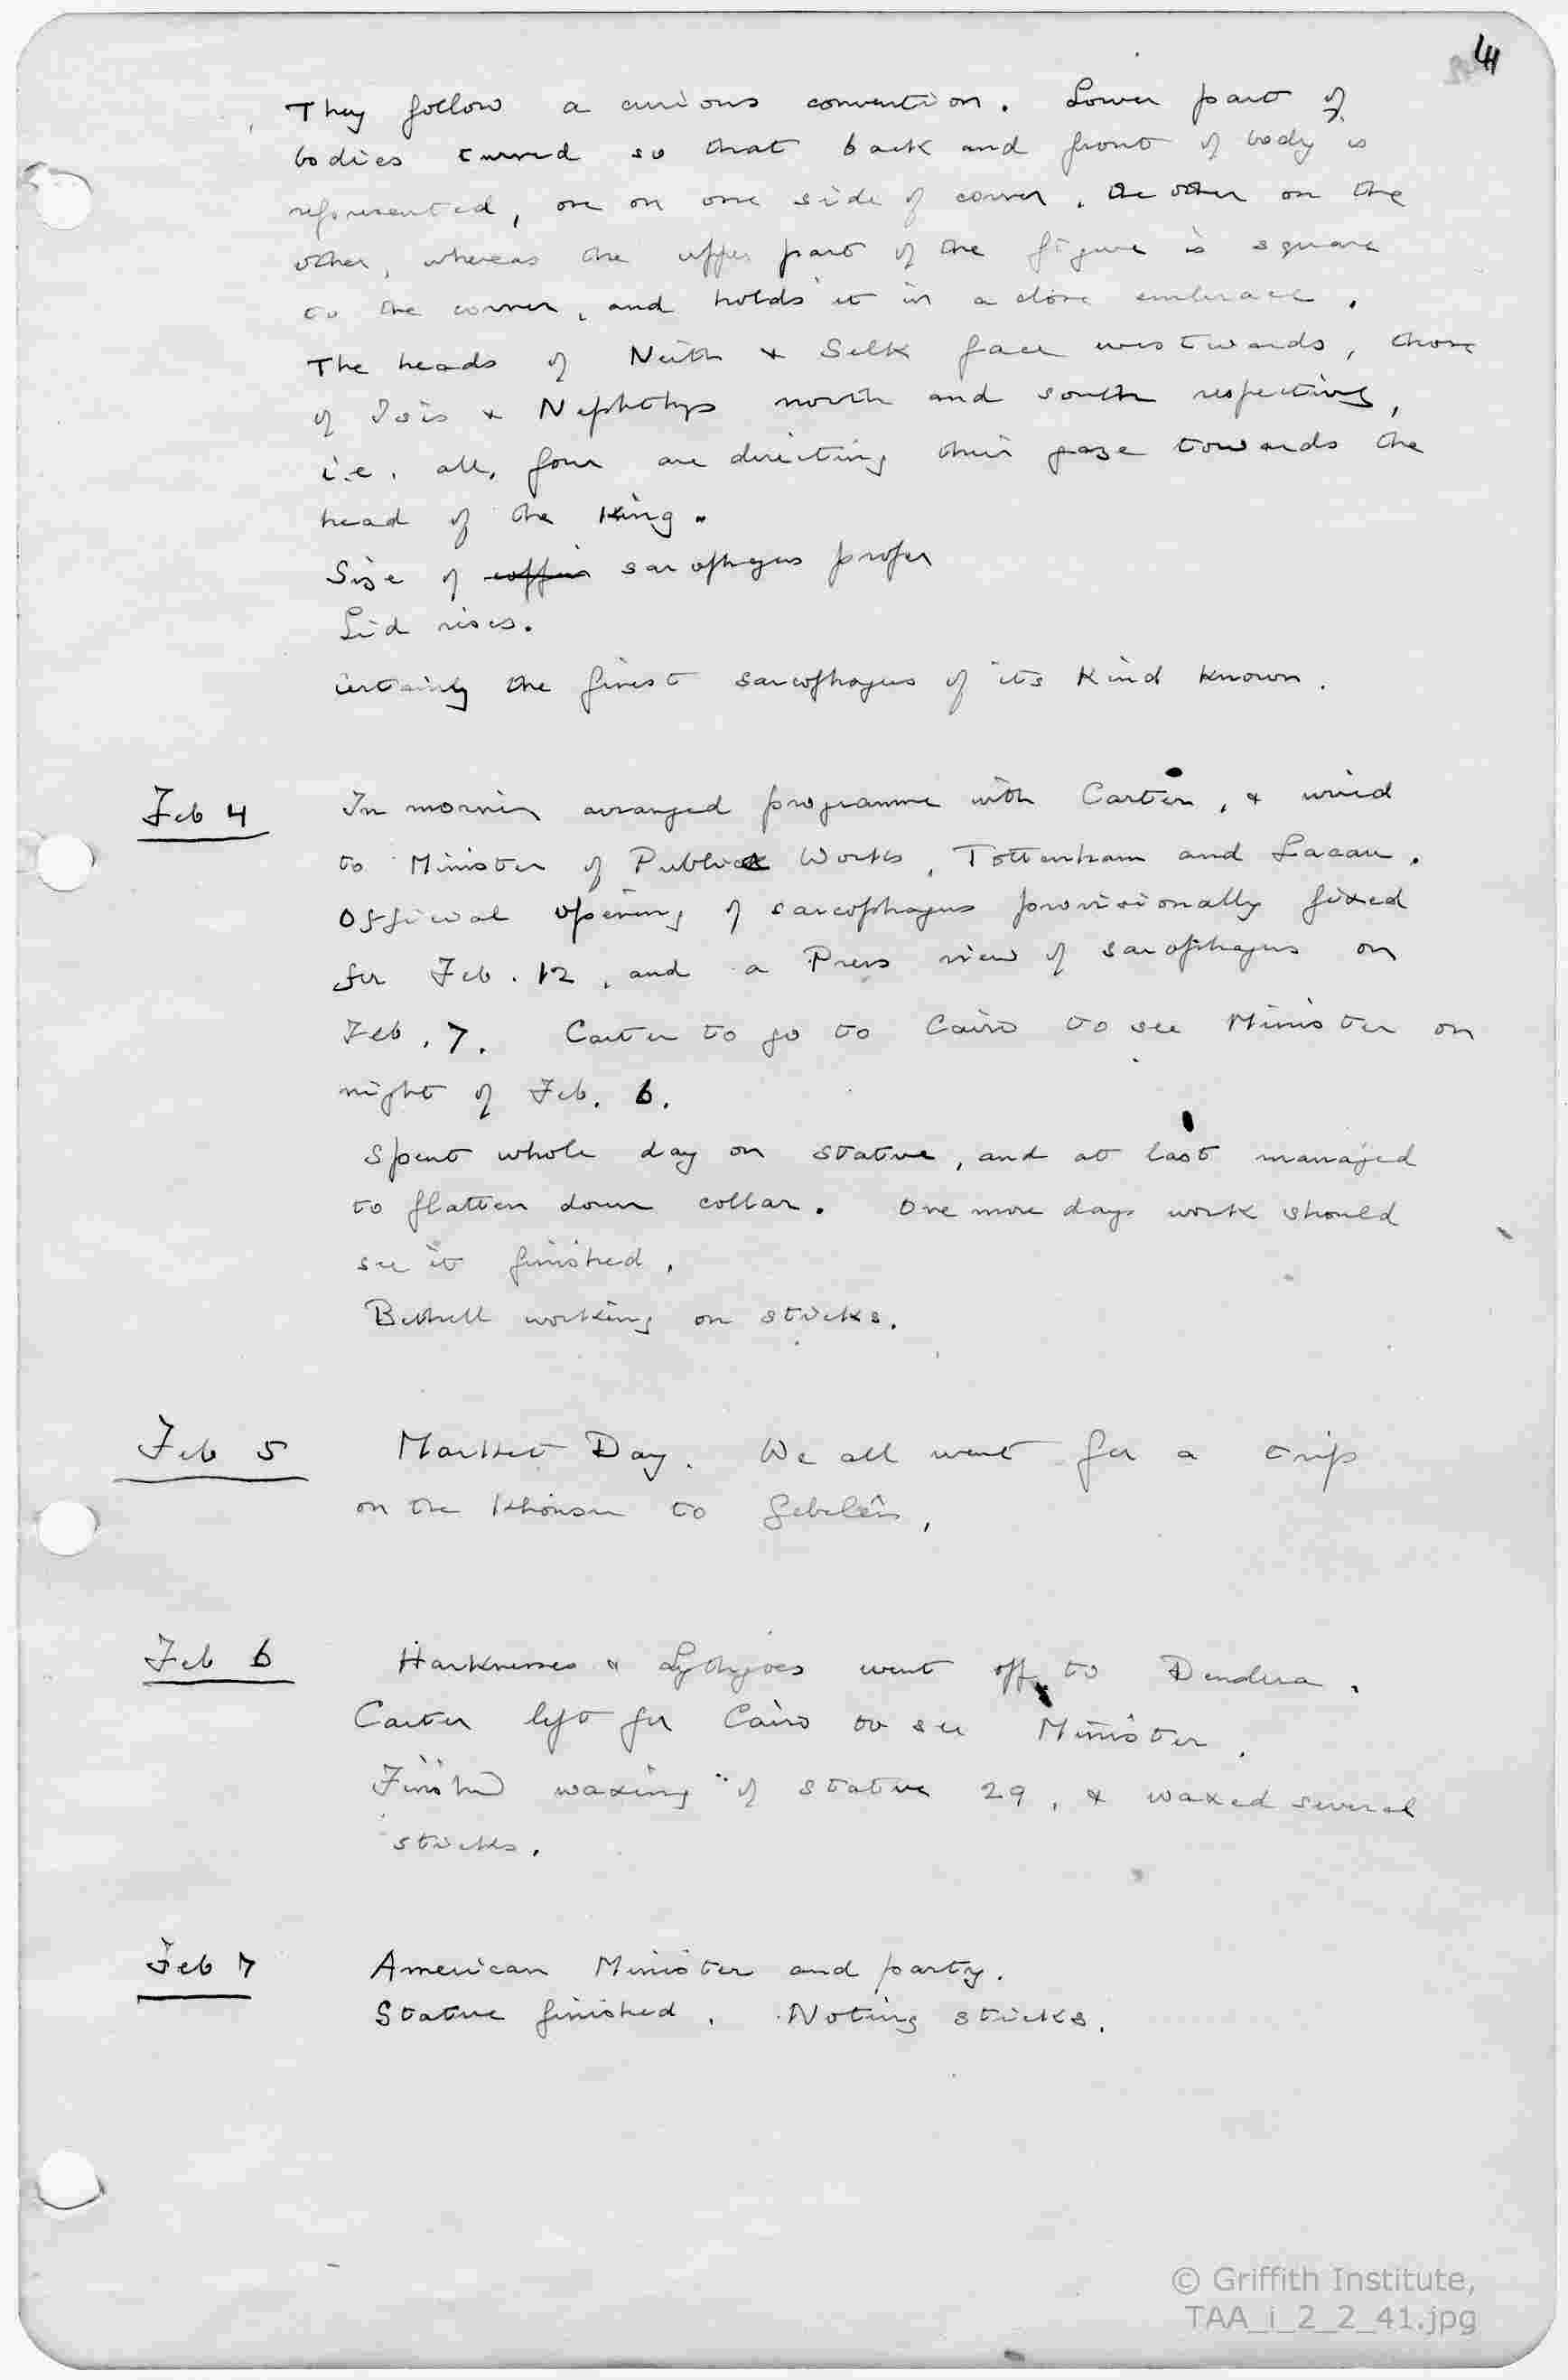 41
They follow a curious convention. Lower part of
bodies turned so that back and front of body is
represented, one on one side of corner, the other on the
other, whereas the upper part of the figure is square
to the corner, and holds it in a close embrace.
The heads of Neith & Selk face westwards, those
of Isis & Nephthys north and south respectively,
i.e. all four are directing their gaze towards the
head of the King.
Size of coffin sarcophagus proper
Lid rises.
Certainly the finest sarcophagus of its kind known.
Feb 4 In morning arranged programme with Carter, & wired
to Minister of Public Works, Tottenham and Lacau.
Official opening of sarcophagus provisionally fixed
for Feb. 12, and a Press view of sarcophagus on
Feb. 7. Carter to go to Cairo to see Minister on
night of Feb. 6.
Spent whole day on statue, and at last managed
to flatten down collar. One more days work should
see it finished.
Bethell working on sticks.
Feb 5 Market Day. We all went for a trip
on the Khonsu to Gebelên.
Feb 6 Harknesses & Lythgoes went off to Dendera.
Carter left for Cairo to see Minister.
Finished waxing of statue 29, & waxed several
sticks.
Feb 7 American Minister and party.
Statue finished. Noting sticks.
© Griffith Institute,
TAA_i_2_2_41.jpg